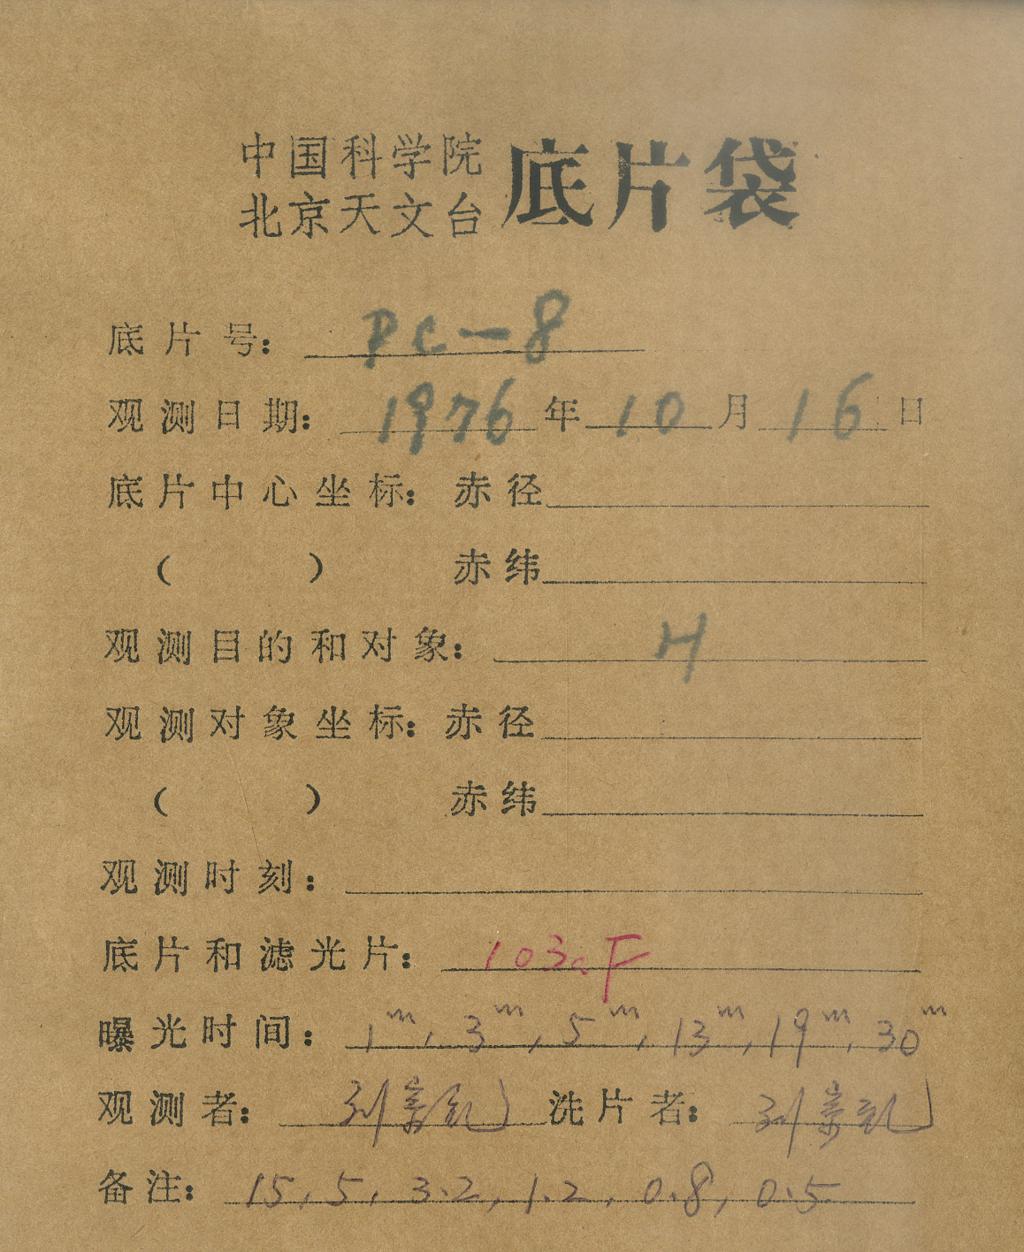 中国科学院
北京天文台 底片袋
底片号： PC-8
观测日期： 1976 年 10 月 16 日
底片中心坐标： 赤径
（ ） 赤纬
观测目的和对象： H
观测对象坐标： 赤径
（ ） 赤纬
观测时刻：
底片和滤光片： 103aF
曝光时间： 1m, 3m, 5m, 13m, 19m, 30m
观测者： 刘 洗片者： 刘
备注： 15, 5, 3.2, 1.2, 0.8, 0.5